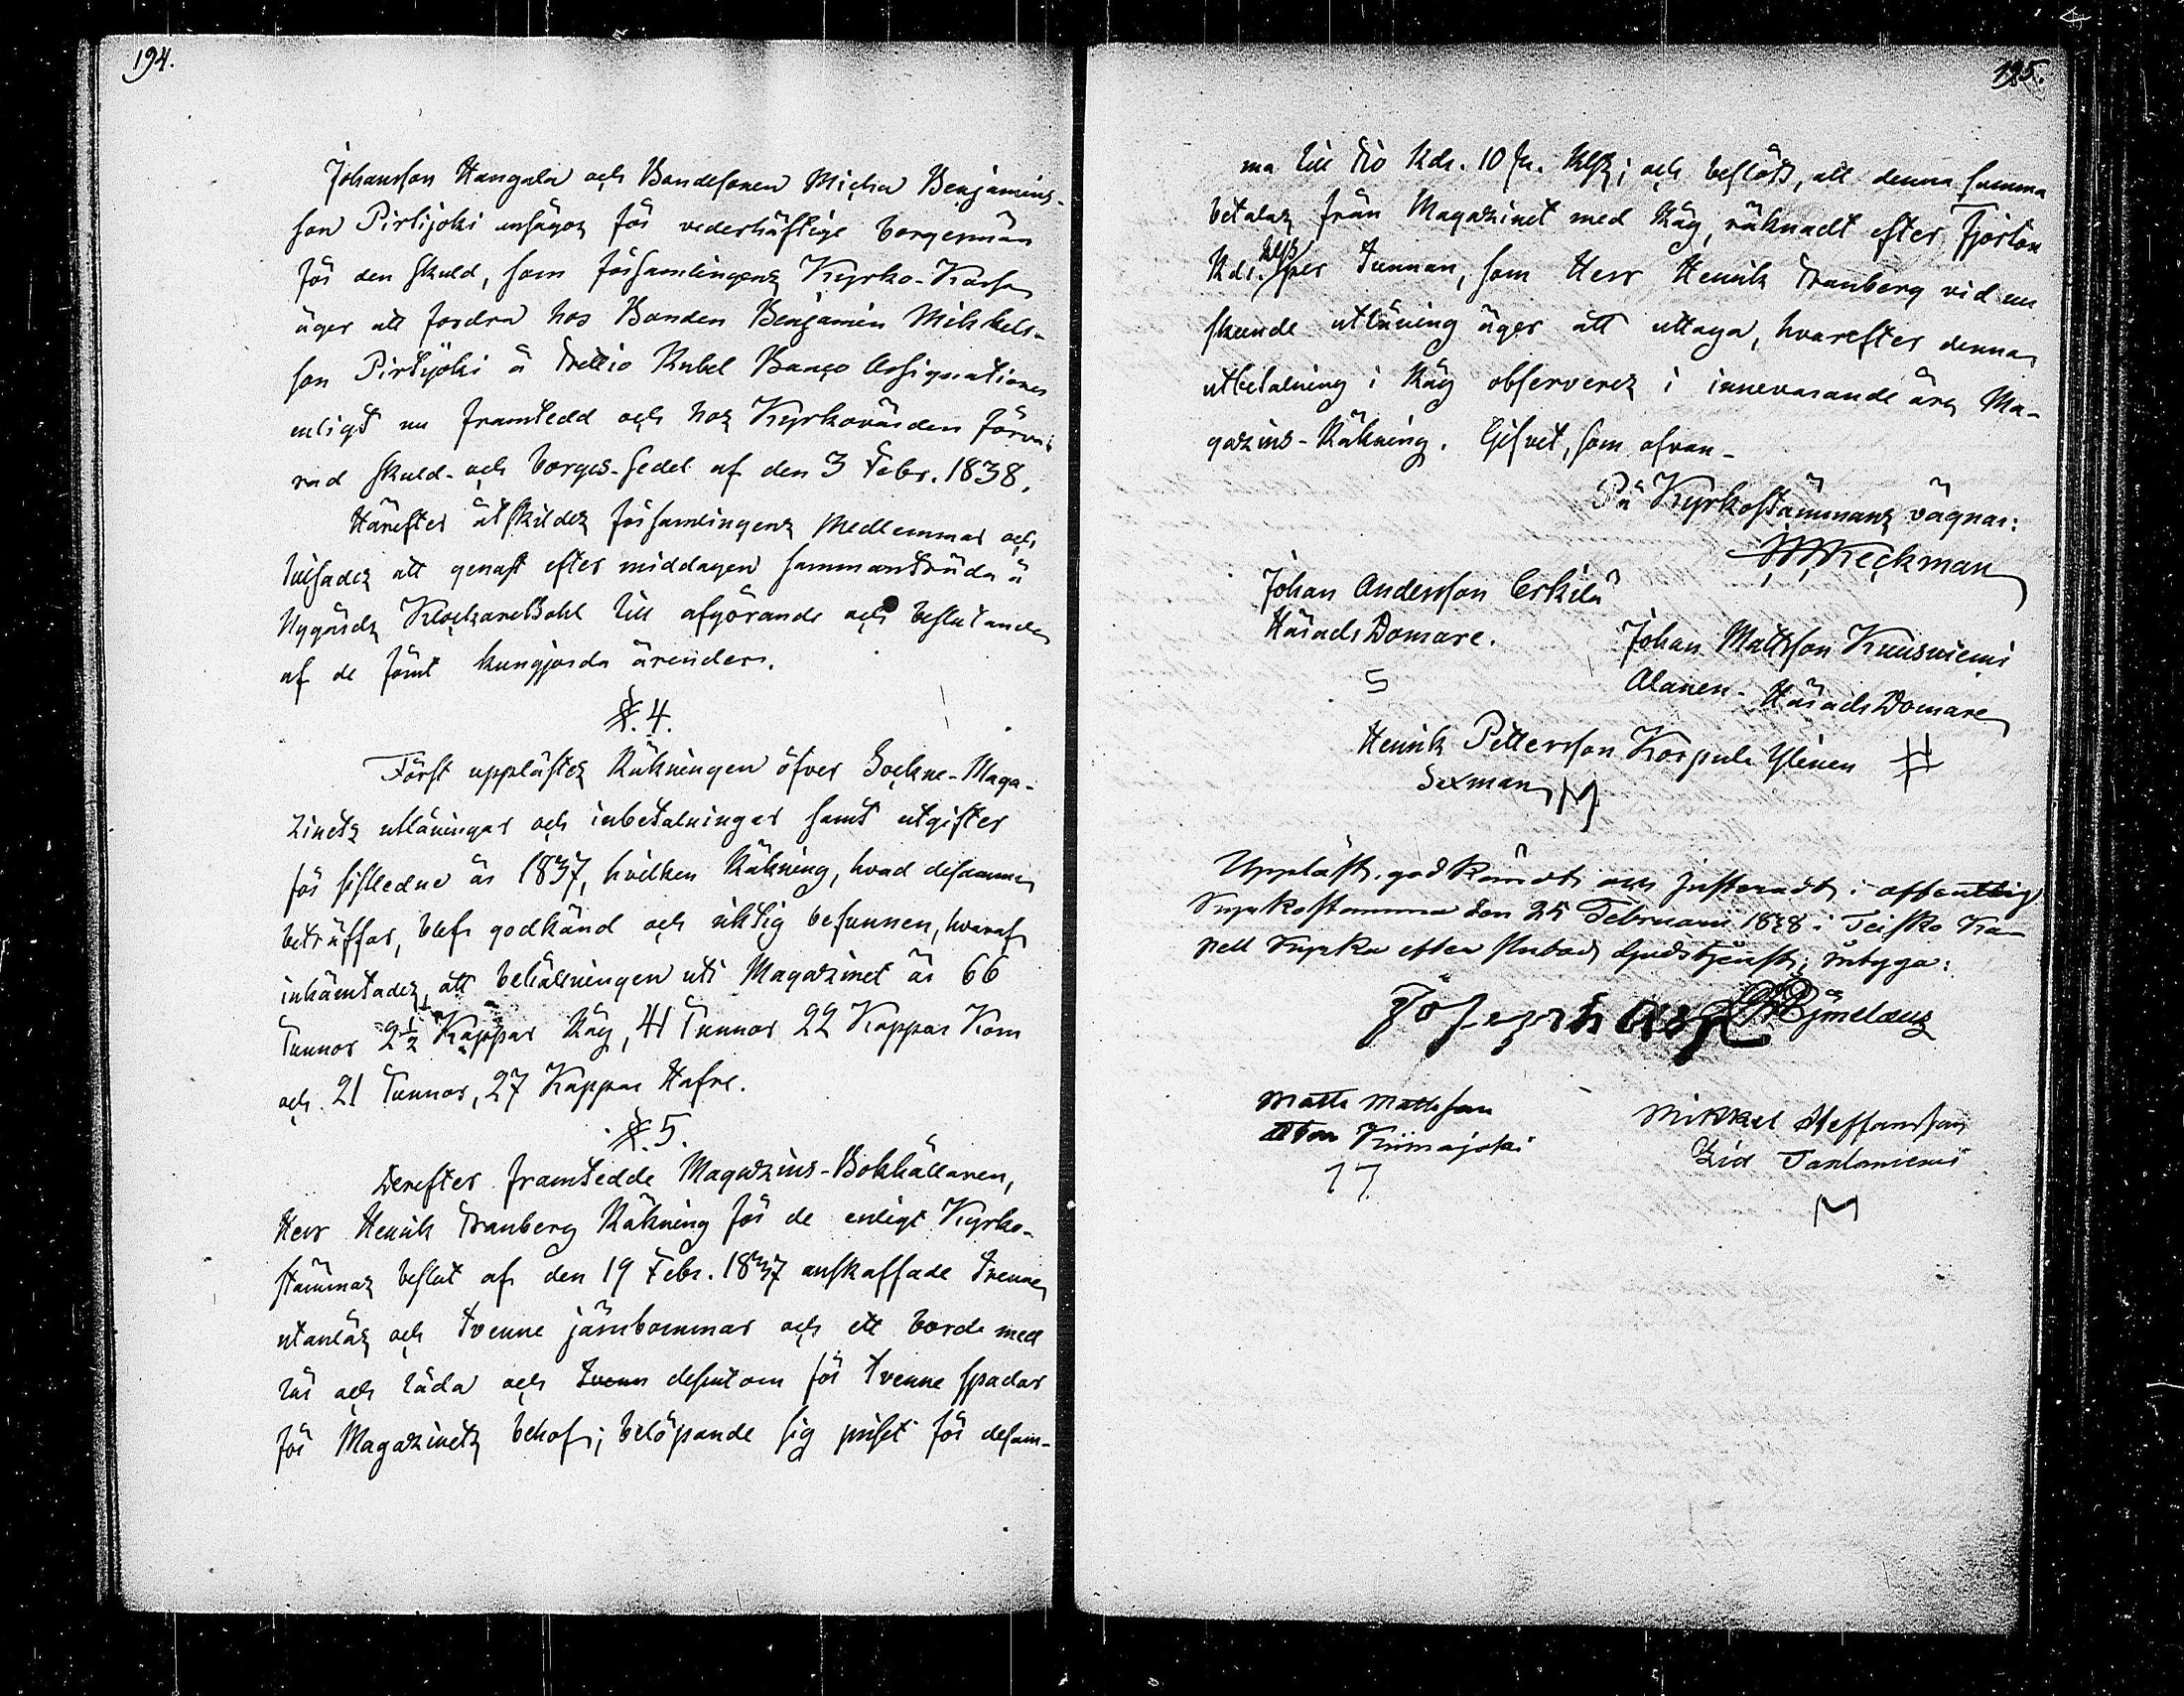 194.
Johansson Hangala och Bondesonen Micha Benjamins-
son Pirtijoki ansågos för vederhäftige borgesmän
för den skuld, som församlingens Kyrko-Kassa
äger att fordra hos Bonden Benjamin Mihkels-
son Pirtijoki à Trettio Rubel Banco Assignationer
enligt nu framtedd och hos Kyrkovärden förva-
rad skuld- och borges-sedel af den 3 Febr. 1838.
Härefter åtskildes församlingens Medlemmar och
lofvades att genast efter middagen sammanträda å
Nygårds KlockareBohl till afgörande och beslutande
af de förut kungjorda ärenden.
§. 4.
Först upplästes Räkningen öfver Sockne-Maga-
zinets utlåningar och inbetalningar samt utgifter
för sistledne år 1837, hvilken Räkning, hvad desamma
beträffar, blef godkänd och riktig befunnen, hvaraf
inhämtades, att behållningen uti Magazinet är 66
Tunnor 2½ Kappar Råg, 41 Tunnor 22 Kappar Korn
och 21 Tunnor, 27 Kappar Hafre.
§. 5.
Derefter framtedde Magazins-Bokhållaren,
Herr Henrik Tranberg Räkning för de enligt Kyrko-
stämmas beslut af den 19 Febr. 1837 anskaffade Trenne
utanlås och tvenne järnbommar och ett bord med
lås och låda och tvenn dessutom för tvenne spadar
för Magazinets behof; belöpande sig priset för desam-
195.
ma till Tio Rdr. 10 sk. Rgs; och beslöts, att denna summa
betalas från Magazinet med Råg, räknadt efter Fjorton
Rdr. Rgs per Tunnan, som Herr Henrik Tranberg vid nu
skeende utlåning äger att uttaga, hvarefter denna
utbetalning i Råg observeres i innevarande års Ma-
gazins-Räkning. Gifvet, som ofvan-
På Kyrkostämmans vägnar:
Keckman
Johan Andersson Erkilä
HäradsDomare.
Johan Mattsson Kuusniemi
Alanen- HäradsDomare
Henrik Pettersson Korpula Ylinen
Sexman
Uppläst, godkändt och justeradt i offentlig
Kyrkostämma den 25 Februarii 1838 i Teisko Ka-
pell Kyrka efter slutad Gudstjenst; intyga:
Björnelaus
Matts Mattsson
Kiimajoki
Mikkel Steffansson